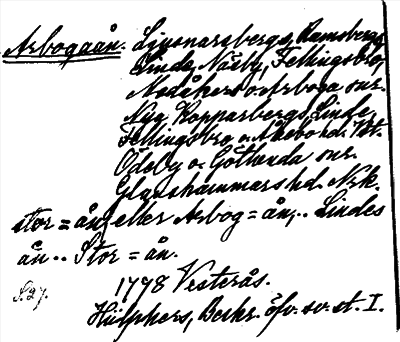 Arbogaån. Ljusnarsbergs, Ramsbergs,
Linde, Näsby, Fellingsbro,
Medåkers o. Arboga snr.
Nya Kopparbergs, Lindes,
Fellingsbro o. Åkerbo hd. Vstm.
Ödeby o. Götlunda snr.
Glanshammars hd. Nrk.
stor=ån eller Arbog=ån,.. Lindes
ån.. Stor=ån.
S. 27. 1778 Vesterås.
Hülphers, Beskr. öfv. sv. st. I.